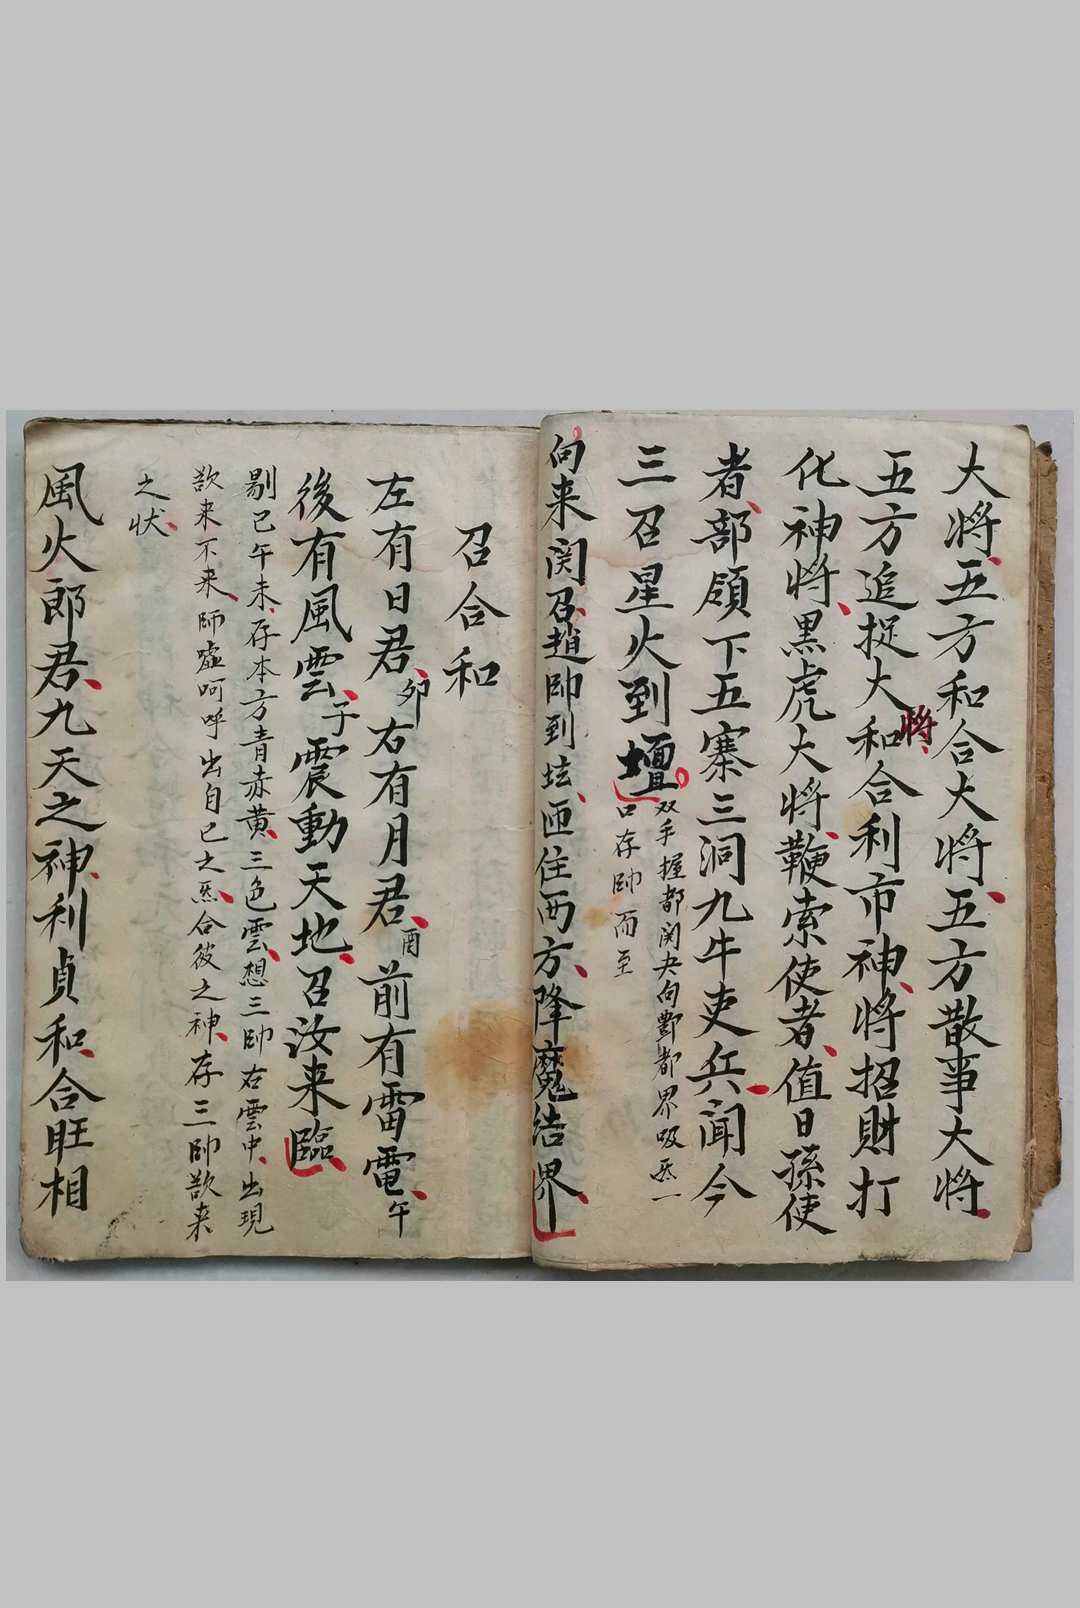 大将、五方和合大将、五方散事大将、
五方追捉大将和合利市神、將招財打
化神将、黒虎大将、鞭索使者、值日孫使
者、部領下五寨三洞九牛吏兵、聞今
三召星火到壇。双手握都関夬向酆都界吸炁一
口存帥而至
向来関召、趙帥到坛、匝住西方、降魔結界、
召合和
左有日君、卯右有月君、酉前有雷電、午
後有風雲、子震動天地、召汝来臨、
剔巳午未、存本方青赤黄、三色雲、想三帥右雲中、出現
欲来不来、師嘘呵呼出自己之炁、合彼之神、存三帥欲来
之状、
風火郎君、九天之神、利貞和、合旺相